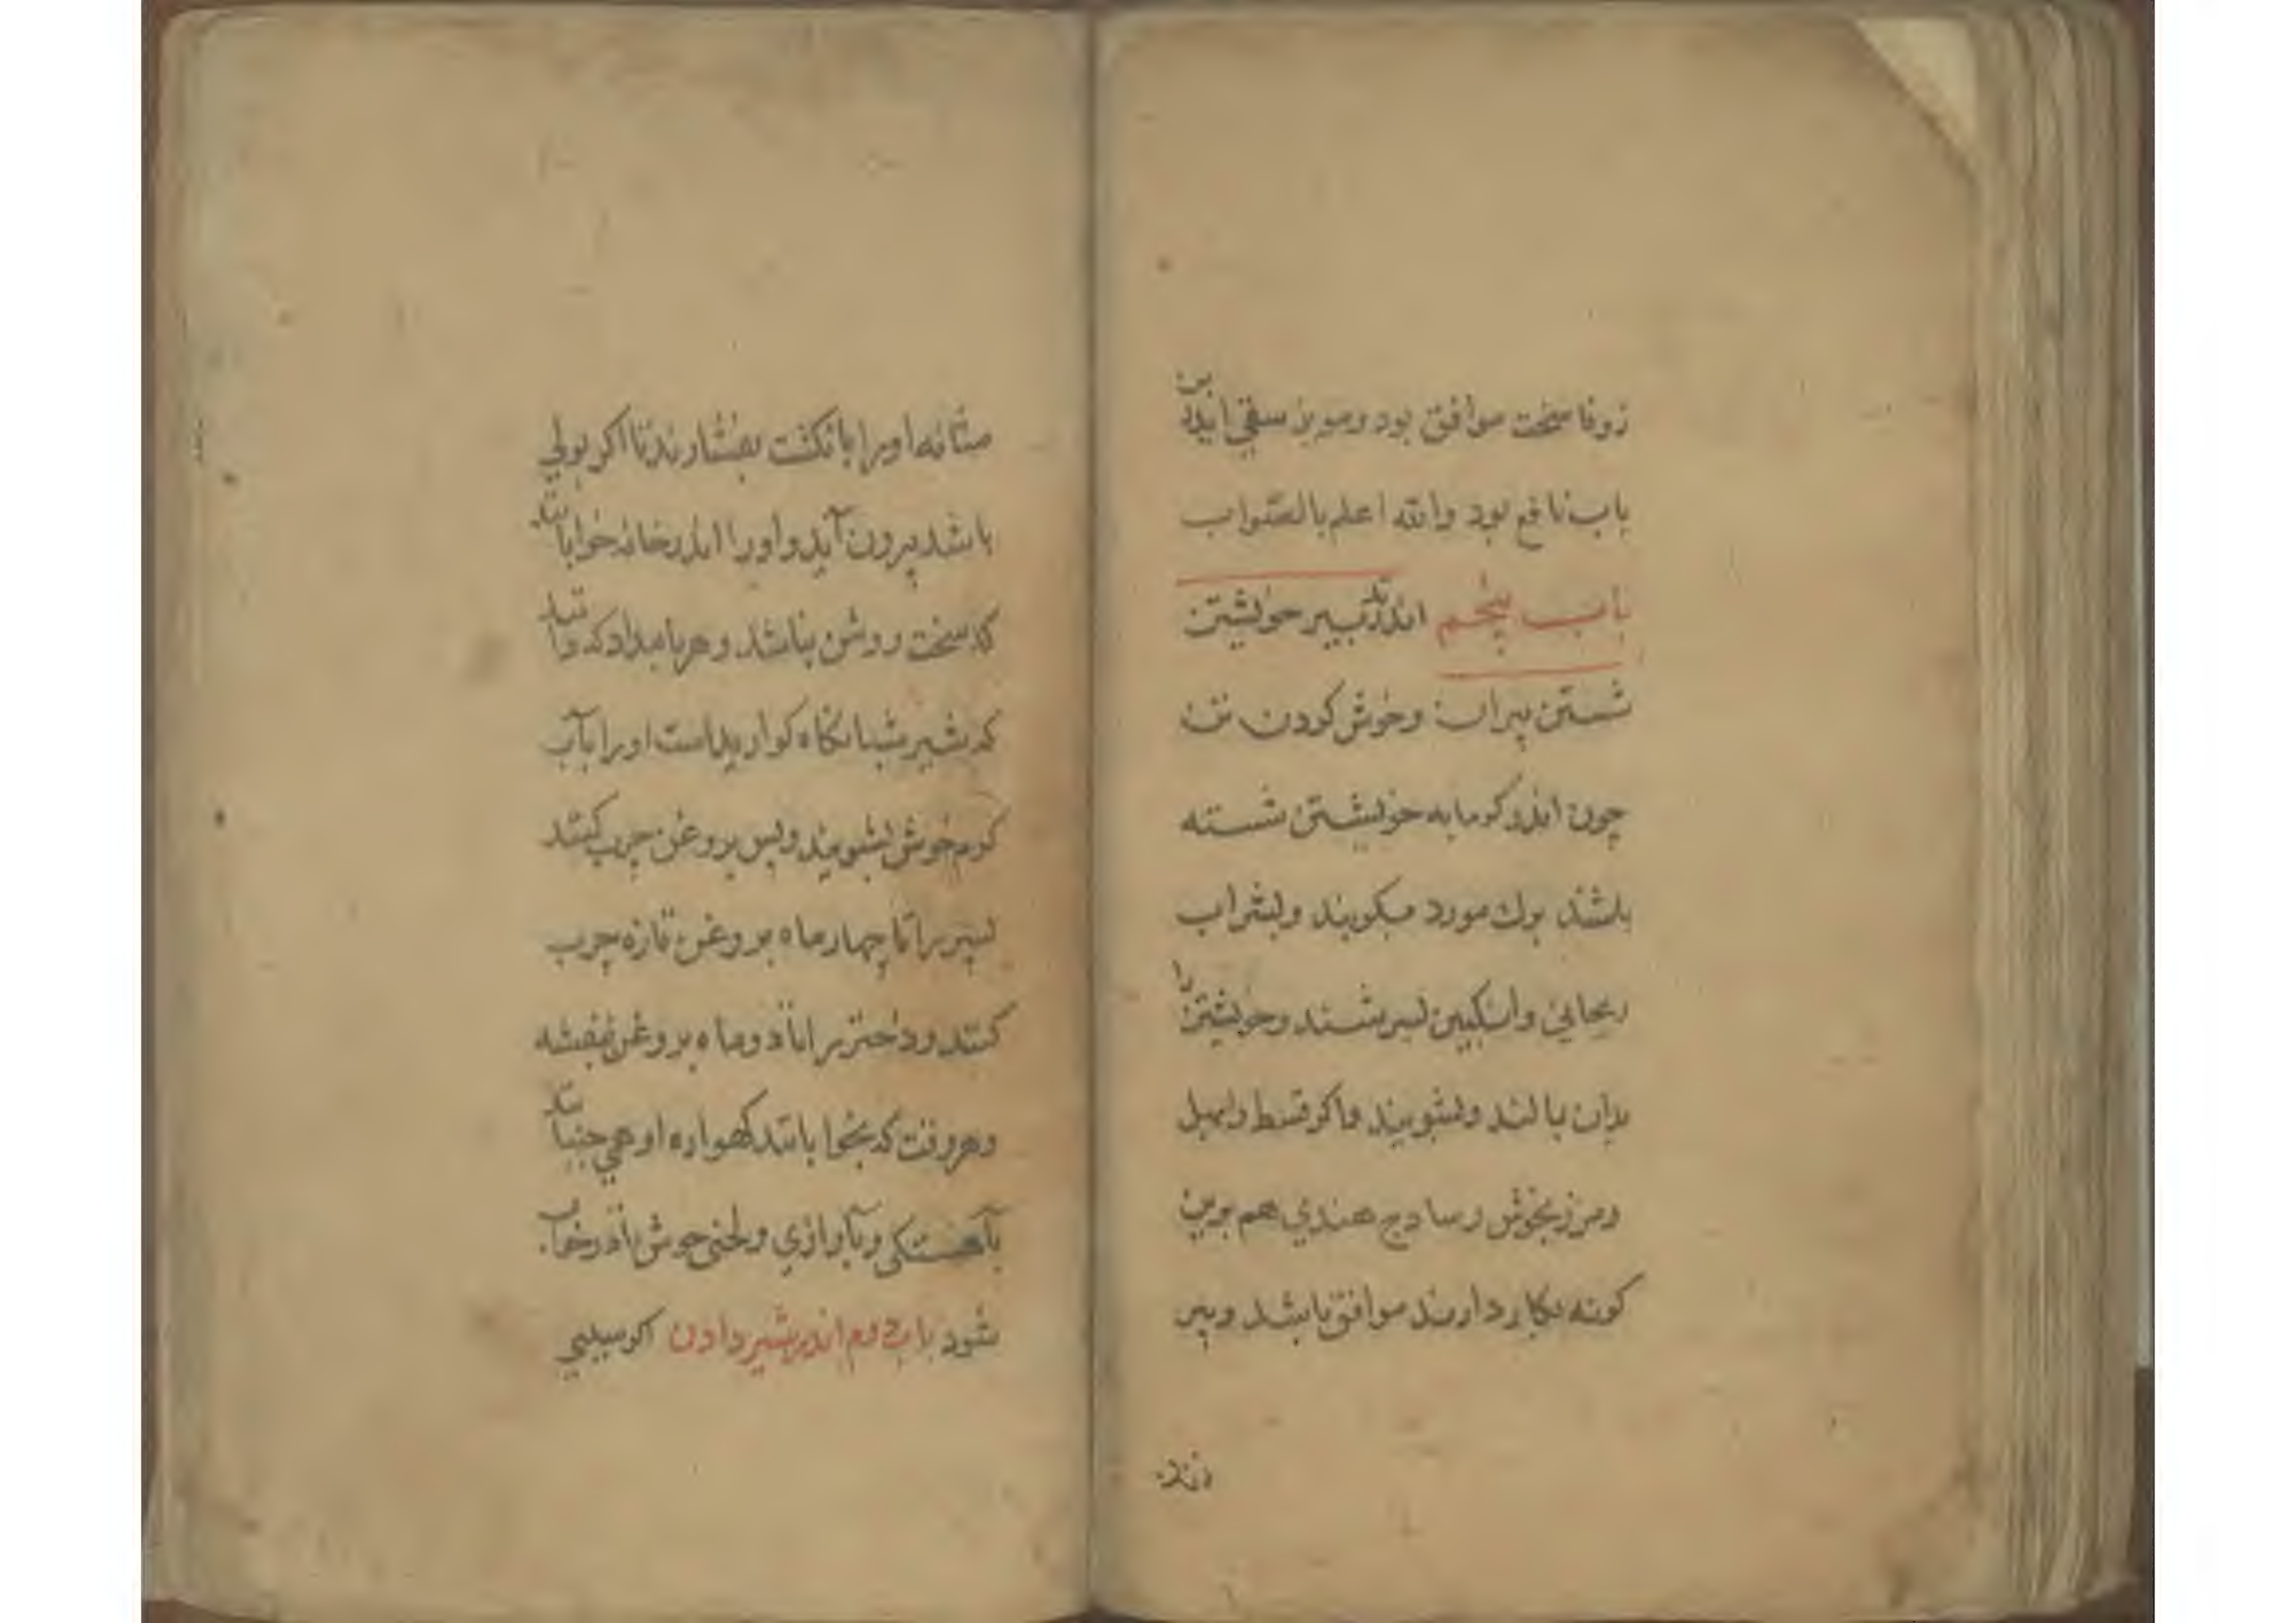 زوفا سخت موافق بود ومویز سقی اندرین
باب نافع بود والله اعلم بالصواب
باب پنجم اندر تدبیر خویشتن
شستن پیران وخوش کردن تن
چون اندر کرمابه خویشتن شسته
باشد برك مورد بکوبند وبشراب
ریحانی وانکبین بسرشند وخویشتن را
بدان بمالند وبشویند واکر قسط وابهل
ومرزنجوش وسادج هندی هم برین
کونه بکار دارند موافق باشد وپیر
مثانه اورا بانکشت بفشارند تا اکر بولی
باشد بیرون آید واورا اندر خانه خوابانند
که سخت روشن نباشد وهر بامداد که دانند
که شیر شبانکاه کواریده است اورا بآب
کرم خوش بشویند وپس بروغن چرب کنند
پسر را تا چهار ماه بروغن تازه چرب
کنند ودختر را تا دوماه بروغن بنفشه
وهر وقت که بخوابانند کهواره او همی جنبانند
بآهستکی وبآوازی ولحنی خوش تا در خواب
شود باب دوم اندر شیر دادن اکر سببی